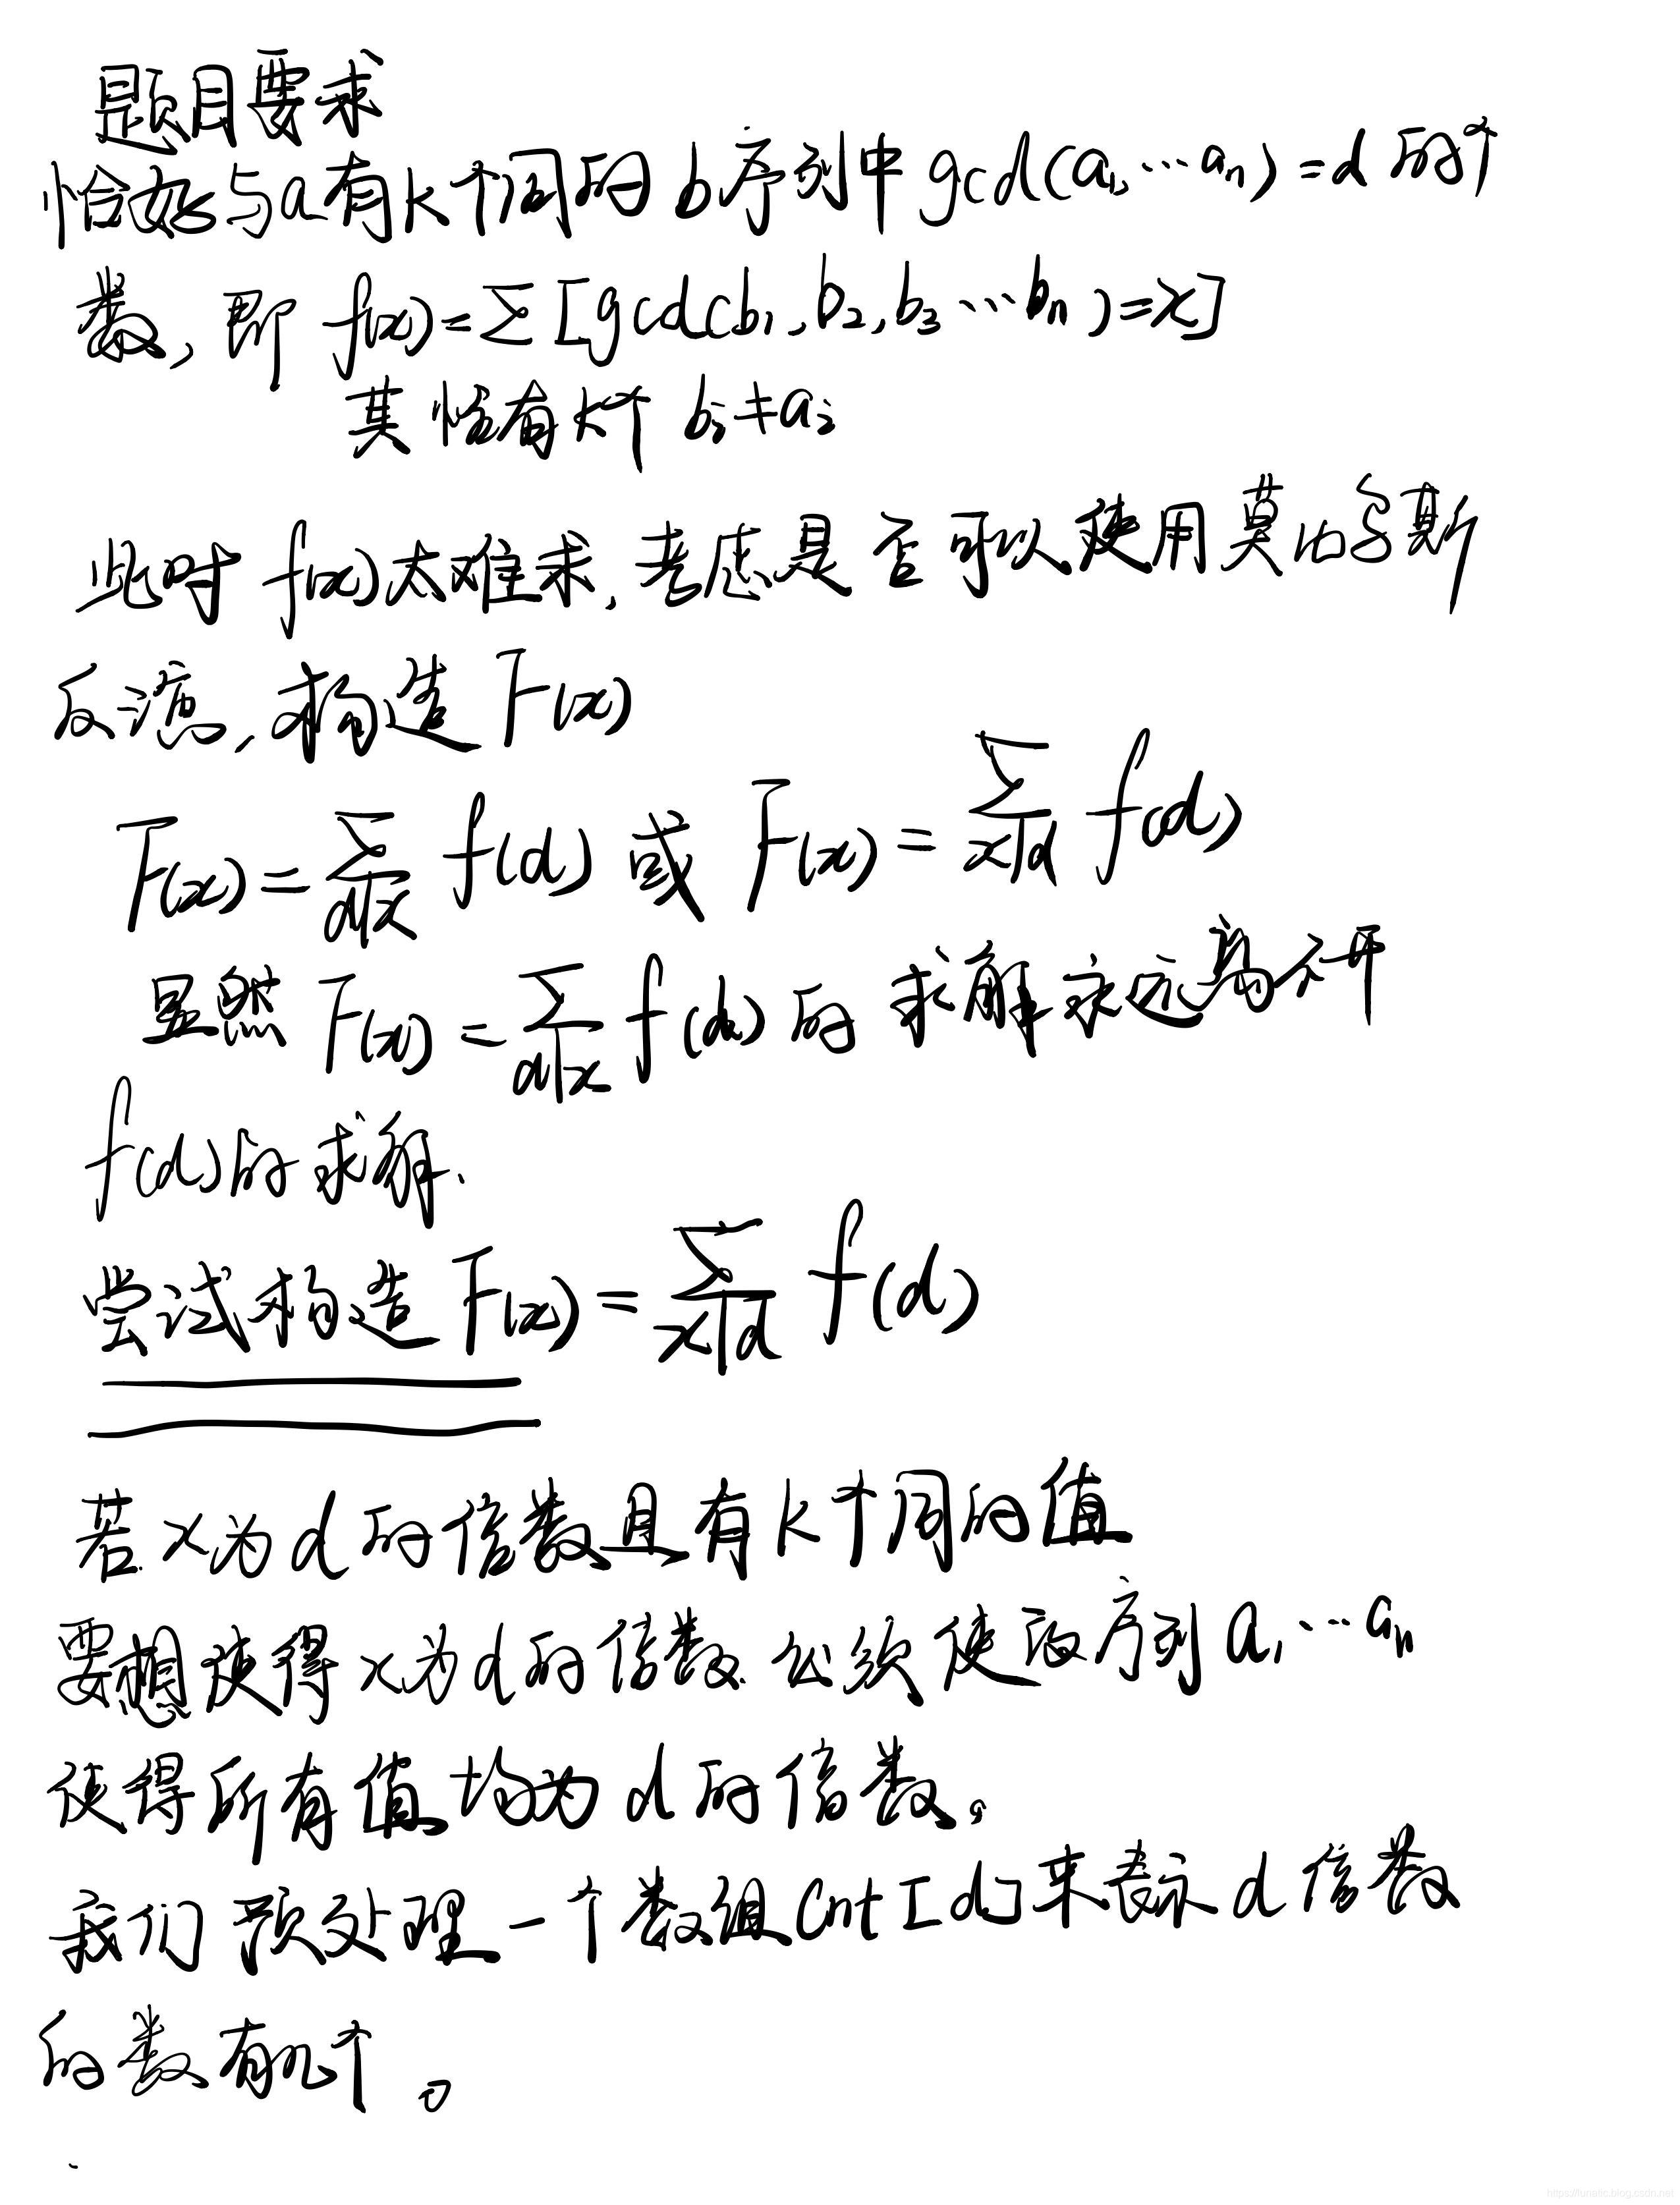 题目要求
恰好与a有k个同的b序列中gcd(a₁,…aₙ)=d的个
数,即 f(x)=∑[gcd(b₁,b₂,b₃…bₙ)=x]
其恰有k个 bᵢ≠aᵢ
此时f(x)太难求,考虑是否可以使用莫比乌斯
反演,构造F(x)
F(x)=∑_{d|x} f(d) 或 F(x)=∑_{x|d} f(d)
显然F(x)=∑_{d|x} f(d)的求解永远离不开
f(d)的求解.
尝试构造F(x)=∑_{x|d} f(d)
若x为d的倍数且有k个同的值
要想使得x为d的倍数必须使改序列a₁…aₙ
使得所有值均为d的倍数。
我们预处理一个数组Cnt[d]来表示d倍数
的数有几个。
https://lunatic.blog.csdn.net